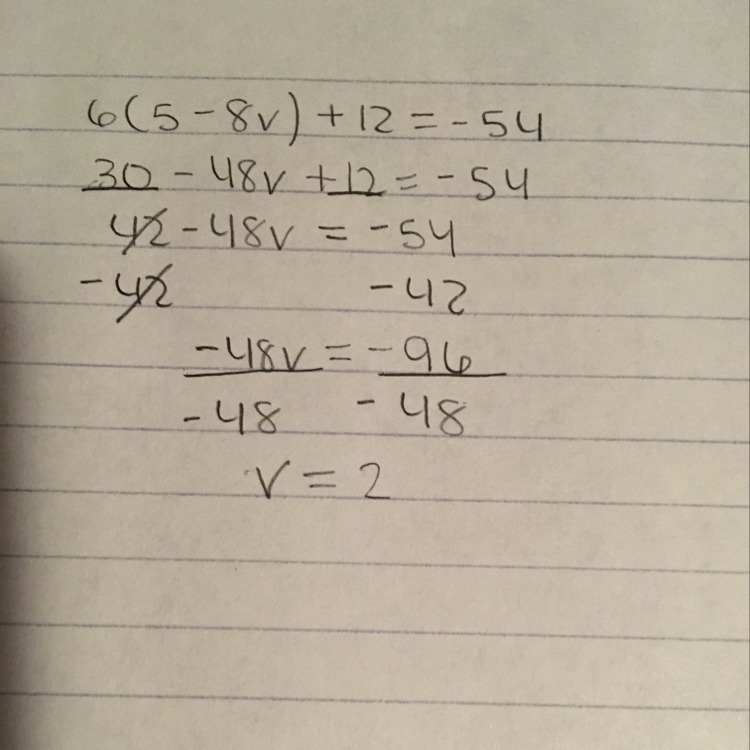 6(5 - 8v) + 12 = -54
30 - 48v + 12 = -54
42 - 48v = -54
-42 -42
-48v = -96
-48 -48
v = 2